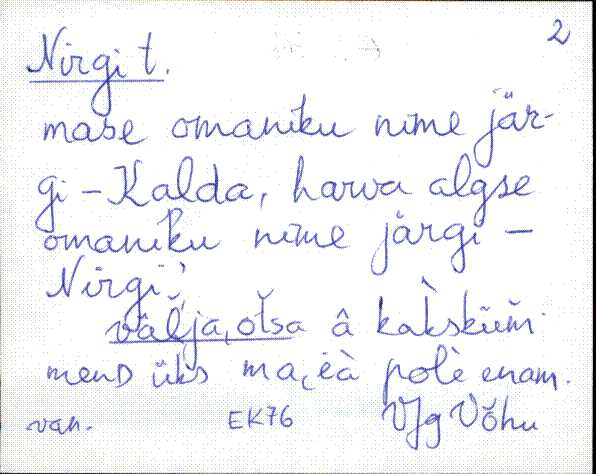 2
Nirgi t.
mase omaniku nime jär-
gi - Kalda, harva algse
omaniku nime järgi -
Nirgi.
välja,otsa â kakskü̬m
mend üks ma,ià polè enam.
van. EK76 VJg Võhu